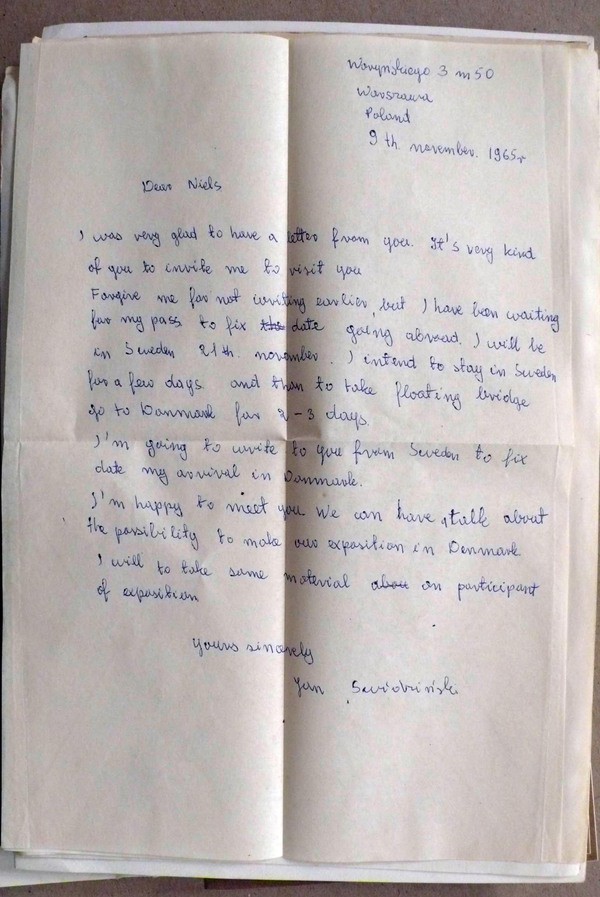 Waryńskiego 3 m 50
Warszawa
Poland
9 th. november. 1965r
Dear Niels
I was very glad to have a letter from you. It's very kind
of you to invite me to visit you
Forgive me for not writing earlier, but I have been waiting
for my pass to fix the date going abroad. I will be
in Sweden 21th. november. I intend to stay in Sweden
for a few days and than to take floating bridge
go to Danmark for 2-3 days.
I'm going to write to you from Sweden to fix
date my arrival in Danmark.
I'm happy to meet you We can have talk about
the possibility to make our exposition in Denmark
I will to take same material abou on participant
of exposition
yours sincerely
Jan Świdziński